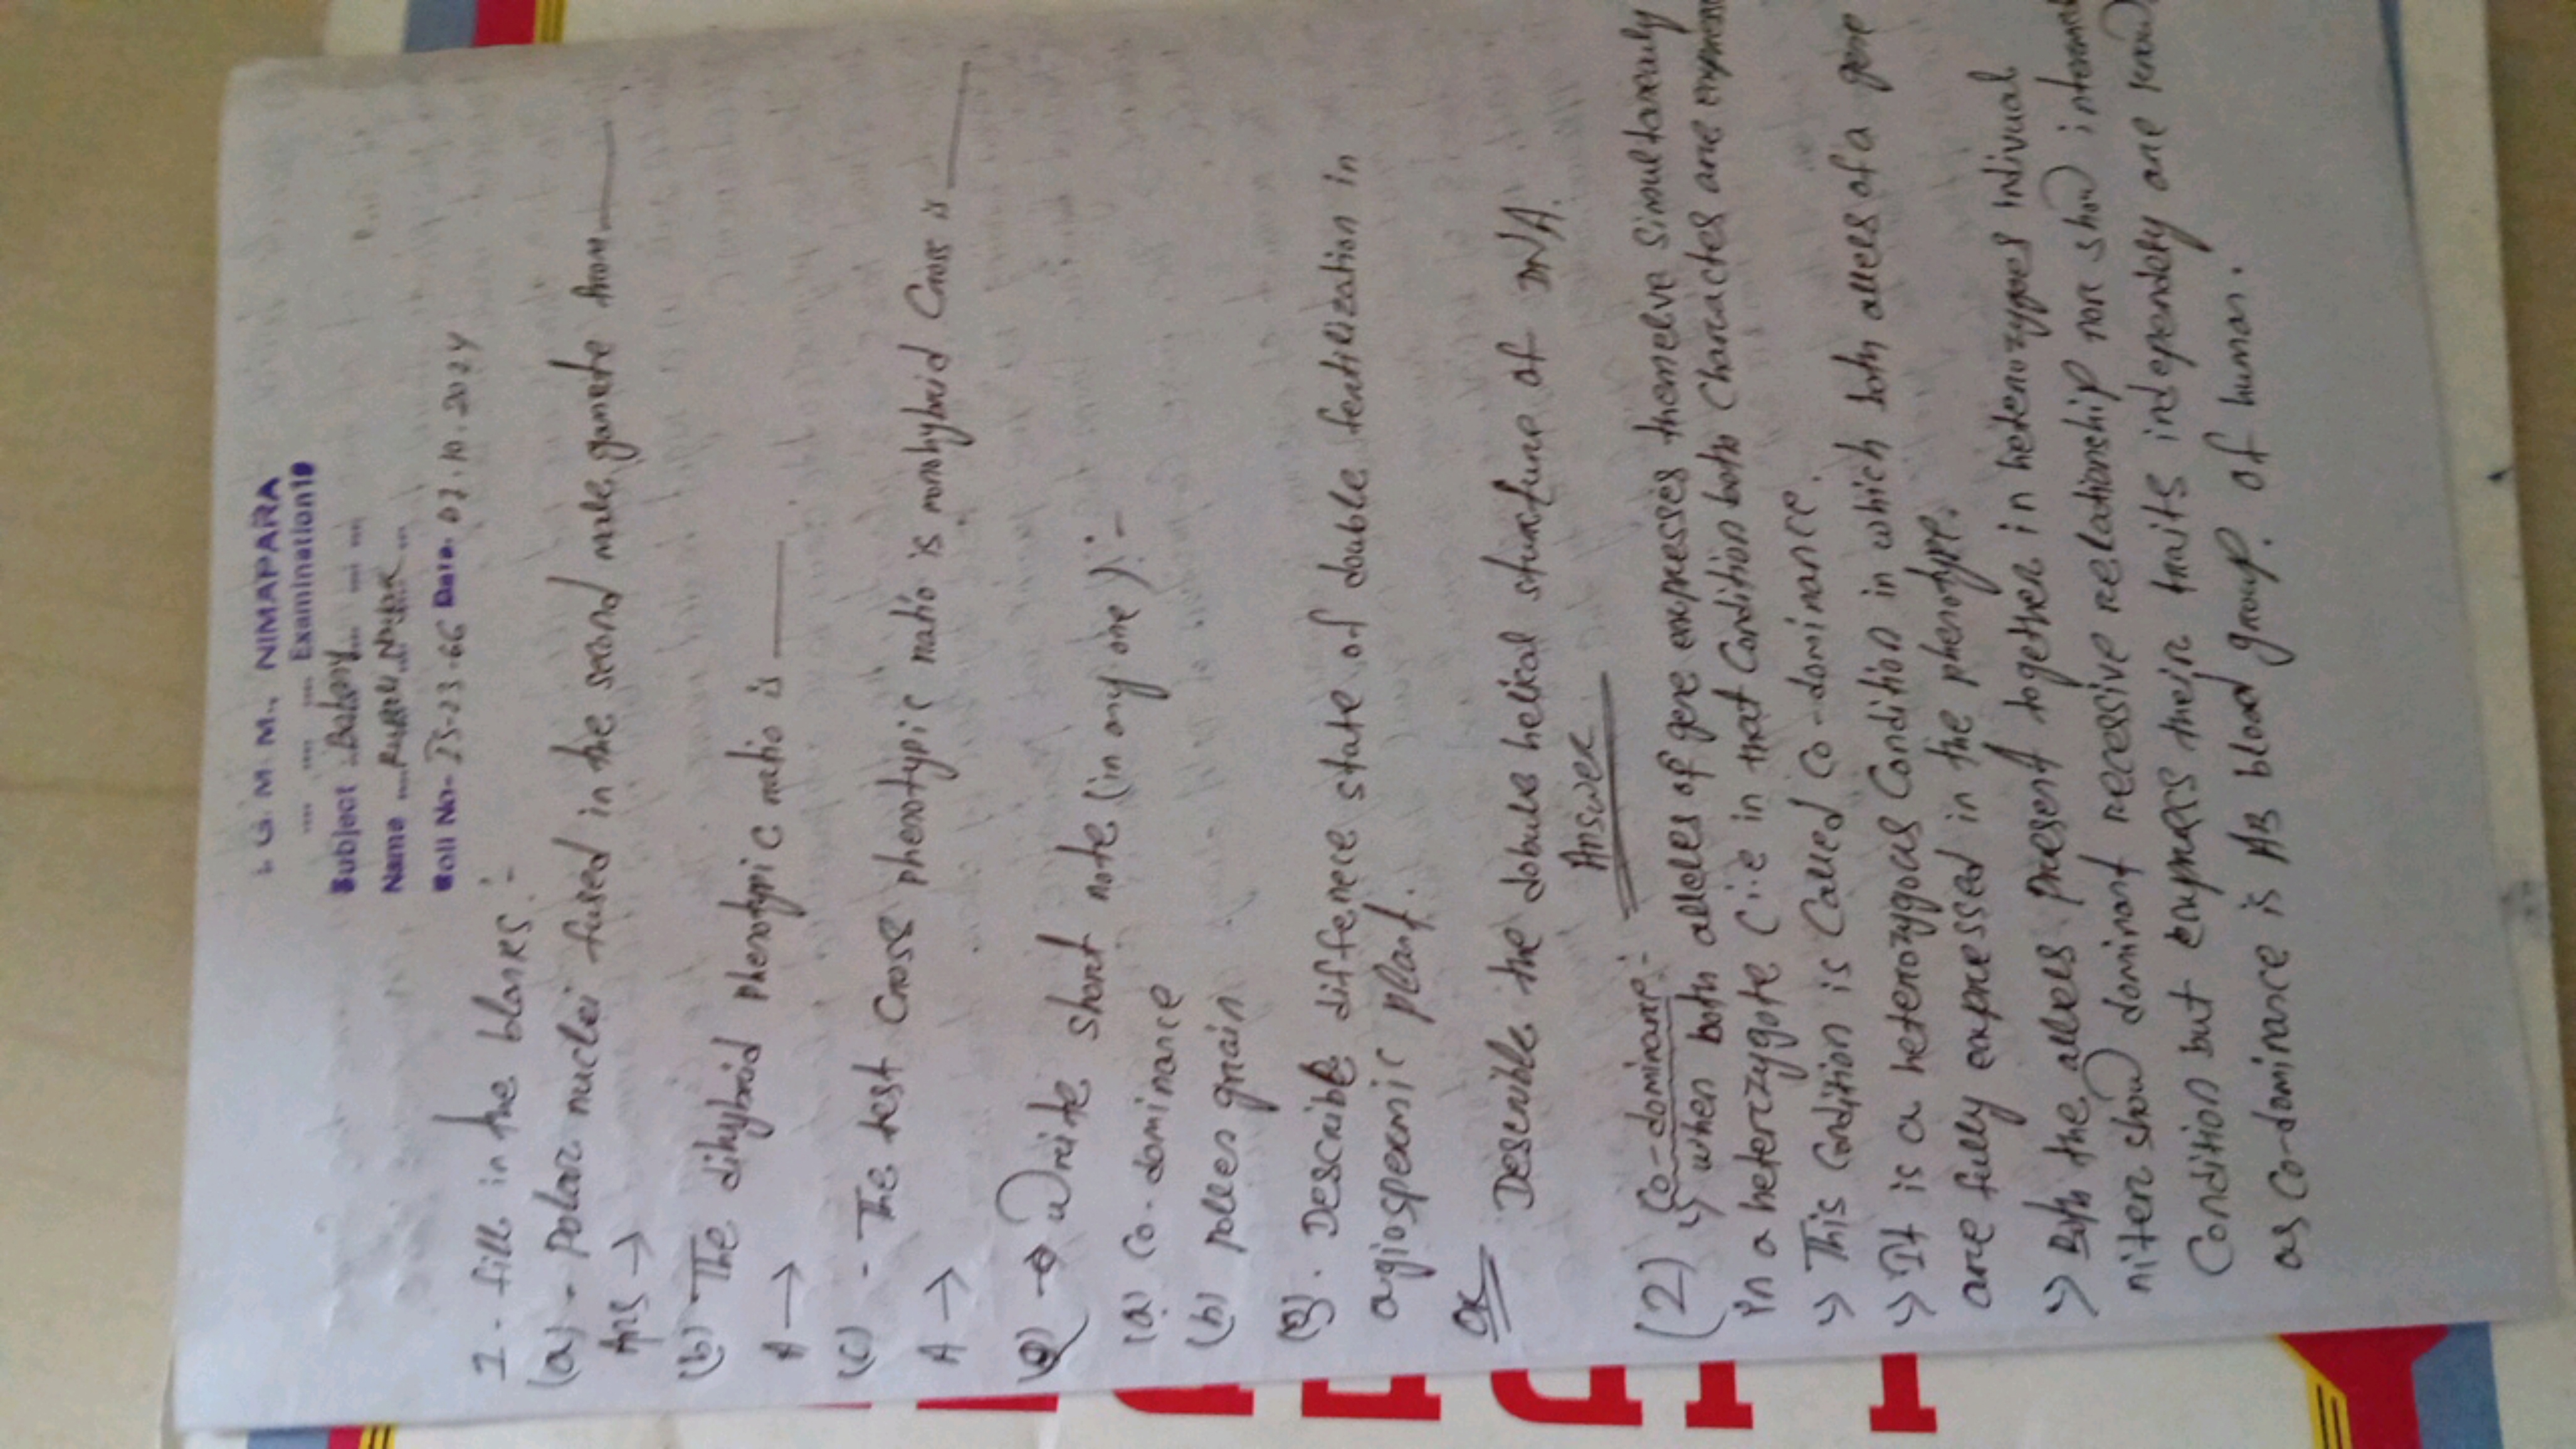 G. M M., NIMAPARA
.... .... .... Examination
Subject Botany
Name
Roll No- IS-23-66 Date. 07.10.2024
1 - fill in the blanks:-
(a) - Polar nuclei fused in the second male gamete from ___
Ans →
(b) - The dihybrid phenotypic ratio is ___
A →
(c) - The test Cross phenotypic ratio is monohybrid Cross is ___
A →
(2) → Write short note (in any one):-
(a) Co-dominance
(b) pollen grain
(3). Describe difference state of double fertilization in
angiospermic plant.
Or Describle the dobule helical structure of DNA.
Answer
(2) Co-dominance:-
↳ when both alleles of gene expresses themselve simultaneously
in a heterozygote (i.e in that Condition both Characters are
↳ This Condition is Called Co-dominance.
↳ It is a heterozygous Condition in which both allees of a gene
are fully expressed in the phenotype.
↳ Both the allees present together in heterozygoes indivual
niter show dominant recessive relationship nor show
Condition but their traits independety are
as Co-dominance is AB blood group. of human.